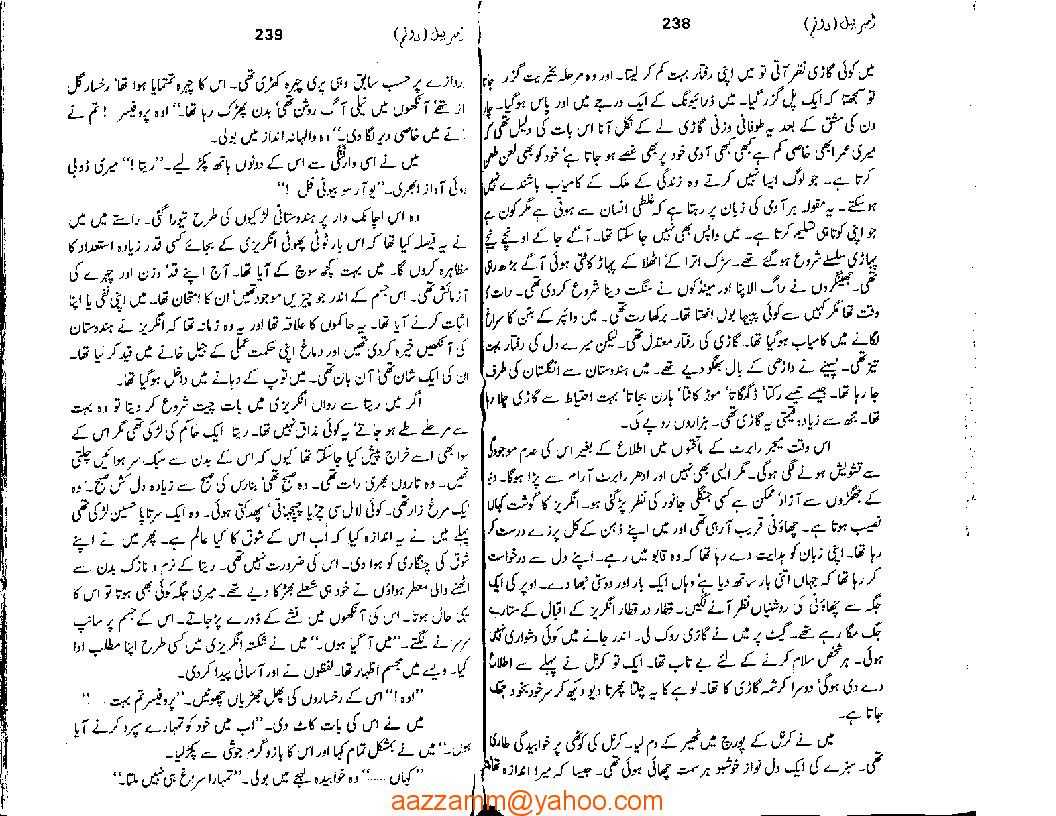 238
میں کوئی گاڑی نظر آتی تو میں اپنی رفتار بہت کم کر لیتا۔ اور وہ مرحلہ بخیریت گزر جاتا
تو سمجھتا کہ ایک پل گزر گیا۔ میں ڈرائیونگ کے ایک درجے میں اور پاس ہوگیا۔ چار
دن کی مشق کے بعد یہ طوفانی وزنی گاڑی لے کے نکل آنا اس بات کی دلیل تھی کہ
میری عمر ابھی خاصی کم ہے کبھی کبھی آدمی خود پر بھی غصے ہو جاتا ہے‘ خود کو بھی لعن طعن
کرتا ہے۔ جو لوگ ایسا نہیں کرتے وہ زندگی کے ملک کے کامیاب باشندے نہیں
ہوسکتے۔ یہ مقولہ ہر آدمی کی زبان پر رہتا ہے کہ غلطی انسان سے ہوتی ہے مگر کون ہے
جو اپنی کوتاہی تسلیم کرتا ہے۔ میں واپس بھی نہیں جا سکتا تھا۔ آگے جا کے اونچے نیچے
پہاڑی سلسلے شروع ہوگئے تھے۔ سڑک اترا کے اٹھلا کے پہاڑ کاٹتی ہوئی آگے بڑھ رہی
تھی۔ جھینگروں نے راگ الاپنا اور مینڈکوں نے سنگت دینا شروع کردی تھی۔ رات کا
وقت تھا مگر کہیں سے کوئی پپیہا بول اٹھتا تھا۔ برکھا رت تھی۔ میں وائپر کے بٹن کا سراغ
لگانے میں کامیاب ہوگیا تھا۔ گاڑی کی رفتار معتدل تھی۔ لیکن میرے دل کی رفتار بہت
تیز تھی۔ پسینے نے داڑھی کے بال بھگو دیے تھے۔ میں ہندوستان سے انگلستان کی طرف
جا رہا تھا۔ جیسے تیسے رکتا‘ ڈگمگاتا‘ موڑ کاٹتا‘ ہارن بجاتا‘ بہت احتیاط سے گاڑی چلا رہا
تھا۔ مجھ سے زیادہ قیمتی یہ گاڑی تھی۔ ہزاروں روپے کی۔
اس وقت میجر رابرٹ کے ماتحتوں میں اطلاع کے بغیر اس کی عدم موجودگی
سے تشویش ہونے لگی ہوگی۔ مگر ایسی بھی نہیں اور ادھر رابرٹ آرام سے پڑا ہوگا۔ دنیا
کے جھگڑوں سے آزاد‘ ممکن ہے کسی جنگلی جانور کی نظر پڑ گئی ہو۔ انگریز کا گوشت کہاں
نصیب ہوتا ہے۔ چھاؤنی قریب آرہی تھی اور میں اپنے ذہن کے کل پرزے درست کر
رہا تھا۔ اپنی زبان کو ہدایت دے رہا تھا کہ وہ قابو میں رہے۔ اپنے دل سے درخواست
کر رہا تھا کہ جہاں اتنی بار ساتھ دیا ہے‘ وہاں ایک بار اور دوستی نبھا دے۔ اوپر کی ایک
جگہ سے چھاؤنی کی روشنیاں نظر آنے لگیں۔ قطار در قطار انگریز کے اقبال کے ستارے
جگمگا رہے تھے۔ گیٹ پر میں نے گاڑی روک لی۔ اندر جانے میں کوئی دشواری نہیں
ہوئی۔ ہر شخص سلام کرنے کے لئے بے تاب تھا۔ ایک تو کرنل نے پہلے سے اطلاع
دے دی ہوگی‘ دوسرا کرشمہ گاڑی کا تھا۔ لوہے کا یہ چلتا پھرتا دیو دیکھ کر سر خود بخود جھک
جاتا ہے۔
میں نے کرنل کے پورچ میں ٹھہر کے دم لیا۔ کرنل کی کوٹھی پر خوابیدگی طاری
تھی۔ سبزے کی ایک دل نواز خوشبو ہر سمت چھائی ہوئی تھی۔ جیسا کہ میرا اندازہ تھا
239
دروازے پر حسب سابق وہی پری چہرہ کھڑی تھی۔ اس کا چہرہ تمتمایا ہوا تھا‘ رخسار گل
تھے‘ آنکھوں میں نیلی آگ روشن تھی‘ بدن پھڑک رہا تھا۔ ”اوہ پروفیسر! تم نے
آنے میں خاصی دیر لگا دی۔“ وہ والہانہ انداز میں بولی۔
میں نے اسی وارفتگی سے اس کے دونوں ہاتھ پکڑ لیے۔ ”ریتا!“ میری ڈوبی
ہوئی آواز ابھری۔ ”یو آر سو بیوٹی فل!“
وہ اس اچانک وار پر ہندوستانی لڑکیوں کی طرح تیورا گئی۔ راستے میں میں
نے یہ فیصلہ کیا تھا کہ اس بار ٹوٹی پھوٹی انگریزی کے بجائے کسی قدر زیادہ استعداد کا
مظاہرہ کروں گا۔ میں بہت کچھ سوچ کے آیا تھا۔ آج اپنے قد‘ وزن اور چہرے کی
آزمائش تھی۔ اس جسم کے اندر جو چیزیں موجود تھیں‘ ان کا امتحان تھا۔ میں اپنی نفی یا اپنا
اثبات کرنے آیا تھا۔ یہ حاکموں کا علاقہ تھا اور یہ وہ زمانہ تھا کہ انگریز نے ہندوستان
کی آنکھیں خیرہ کردی تھیں اور دماغ اپنی حکمت عملی کے جیل خانے میں قید کر لیا تھا۔
ان کی ایک شان تھی‘ آن بان تھی۔ میں توپ کے دہانے میں داخل ہوگیا تھا۔
اگر میں ریتا سے رواں انگریزی میں بات چیت شروع کر دیتا تو وہ بہت
سے مرحلے طے ہو جاتے‘ یہ کوئی مذاق نہیں تھا۔ ریتا ایک حاکم کی لڑکی تھی مگر اس کے
سوا بھی اسے خراج پیش کیا جاسکتا تھا کیوں کہ اس کے بدن سے سبک سر ہوائیں چلتی
تھیں۔ وہ تاروں بھری رات تھی۔ وہ صبح تھی‘ بنارس کی صبح سے زیادہ دل کش صبح۔ وہ
ایک مرغ زار تھی۔ کوئی لال سی چڑیا چہچہاتی‘ پھدکتی ہوئی۔ وہ ایک سرتاپا حسین لڑکی تھی
پہلے میں نے یہ اندازہ کیا کہ اب اس کے شوق کا کیا عالم ہے۔ پھر میں نے اپنے
شوق کی چنگاری کو ہوا دی۔ اس کی ضرورت نہیں تھی۔ ریتا کے نرم و نازک بدن سے
اٹھنے والی معطر ہواؤں نے خود ہی شعلے بھڑکا دیے تھے۔ میری جگہ کوئی بھی ہوتا تو اس کا
یہی حال ہوتا۔ اس کی آنکھوں میں نشے کے ڈورے پڑجاتے۔ اس کے جسم پر سانپ
سرسرانے لگتے۔ ”میں آگیا ہوں۔“ میں نے شکستہ انگریزی میں کسی طرح اپنا مطلب ادا
کیا۔ ویسے میں مجسم اظہار تھا۔ لفظوں نے اور آسانی پیدا کردی۔
”اوہ!“ اس کے رخساروں کی پھل جھڑیاں چھوٹیں۔ ”پروفیسر تم بہت !“
میں نے اس کی بات کاٹ دی۔ ”اب میں خود کو تمہارے سپرد کرنے آیا
ہوں۔“ میں نے بمشکل تمام کہا اور اس کا بازو گرم جوشی سے پکڑ لیا۔
”کہاں .....“ وہ خوابیدہ لہجے میں بولی۔ ”تمہارا سراغ ہی نہیں ملتا۔“
aazzamm@yahoo.com